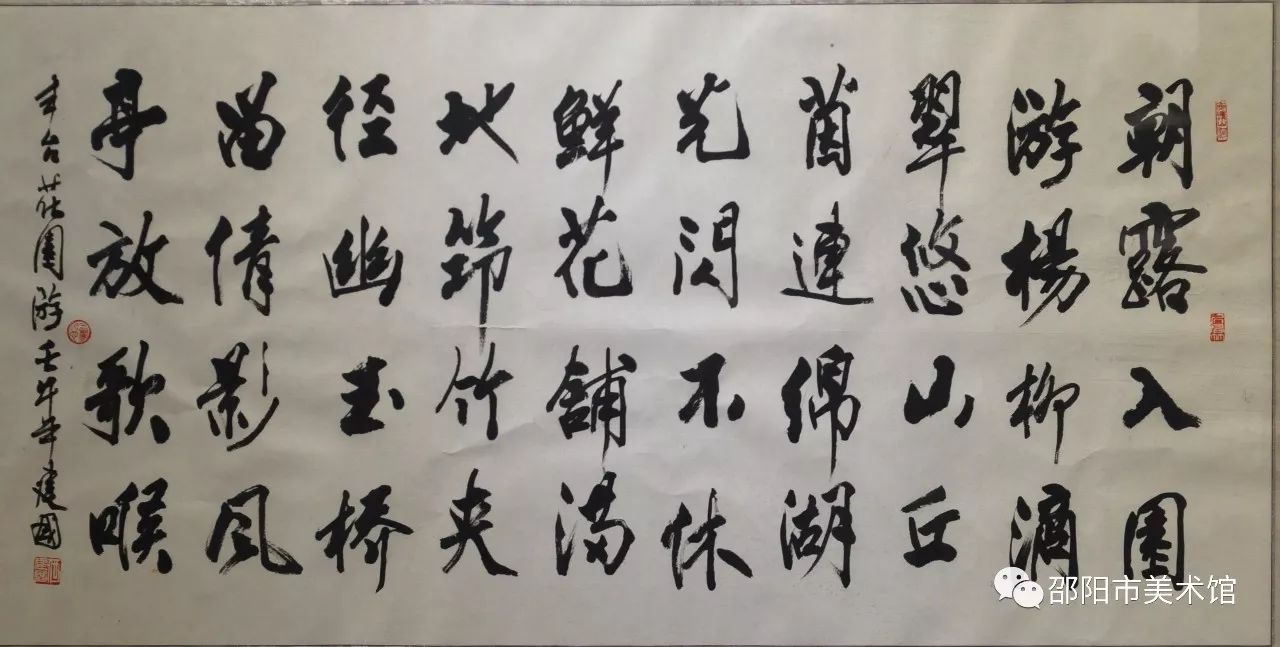 朝露入園
游楊柳滴
翠悠山丘
茵連綿湖
光閃不休
鮮花舖滿
地筇竹夹
径幽玉橋
留倩影風
亭放歌喉
丰台花園游壬午年建國
邵阳市美术馆